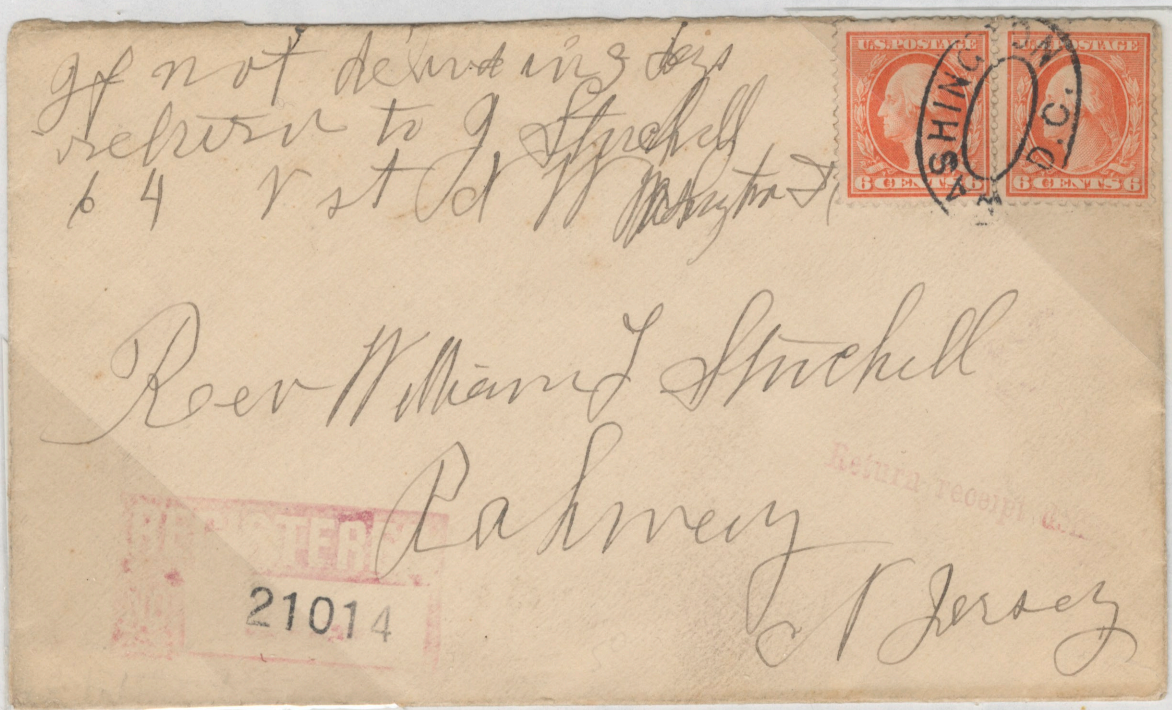 If not delivered in 3 days
return to J Stuchell
64 V st N W Washington D
U.S. POSTAGE
6 CENTS 6
U.S. POSTAGE
6 CENTS 6
WASHINGTON D.C.
Rev William J Stuchell
Rahwey
N Jersey
Return receipt
REGISTERED
NO.
21014